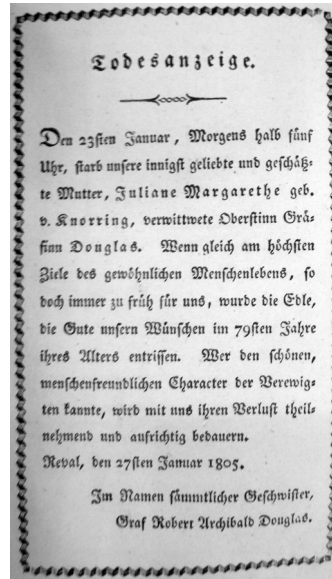 Todesanzeige.
Den 23sten Januar, Morgens halb fünf
Uhr, starb unsere innigst geliebte und geschätz-
te Mutter, Juliane Margarethe geb.
v. Knorring, verwittwete Oberstinn Grä-
finn Douglas. Wenn gleich am höchsten
Ziele des gewöhnlichen Menschenlebens, so
doch immer zu früh für uns, wurde die Edle,
die Gute unsern Wünschen im 79sten Jahre
ihres Alters entrissen. Wer den schönen,
menschenfreundlichen Character der Verewig-
ten kannte, wird mit uns ihren Verlust theil-
nehmend und aufrichtig bedauern.
Reval, den 27sten Januar 1805.
Im Namen sämmtlicher Geschwister,
Graf Robert Archibald Douglas.